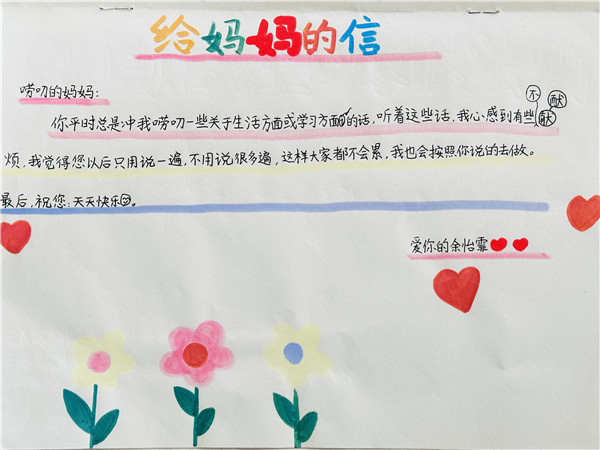 给妈妈的信
唠叨的妈妈:
不
你平时总是冲我唠叨一些关于生活方面或学习方面的话,听着这些话,我心感到有些
烦,我觉得您以后只用说一遍,不用说很多遍,这样大家都不会累,我也会按照你说的去做。
最后,祝您:天天快乐。
爱你的余怡霏